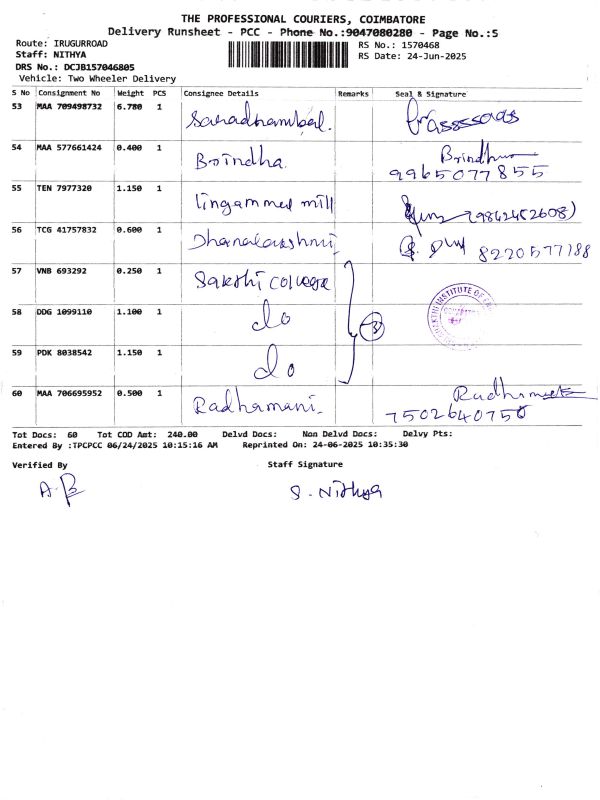 THE PROFESSIONAL COURIERS, COIMBATORE
Delivery Runsheet - PCC - Phone No.:9047080280 - Page No.:5
Route: IRUGURROAD
Staff: NITHYA
DRS No.: DCJB157046805
Vehicle: Two Wheeler Delivery
RS No.: 1570468
RS Date: 24-Jun-2025
S No Consignment No Weight PCS Consignee Details Remarks Seal & Signature
53 MAA 709498732 6.780 1 Saradhambal.
54 MAA 577661424 0.400 1 Brindha Brindha
9965077855
55 TEN 7977320 1.150 1 lingammed mill
56 TCG 41757832 0.600 1 Dhanalakshmi 8220577188
57 VNB 693292 0.250 1 Sakthi College
58 DDG 1099110 1.100 1 do
59 PDK 8038542 1.150 1 do
3
60 MAA 706695952 0.500 1 Radhamani. Radhamani
7502640750
Tot Docs: 60 Tot COD Amt: 240.00 Delvd Docs: Non Delvd Docs: Delvy Pts:
Entered By :TPCPCC 06/24/2025 10:15:16 AM Reprinted On: 24-06-2025 10:35:30
Verified By Staff Signature
S. Nithya